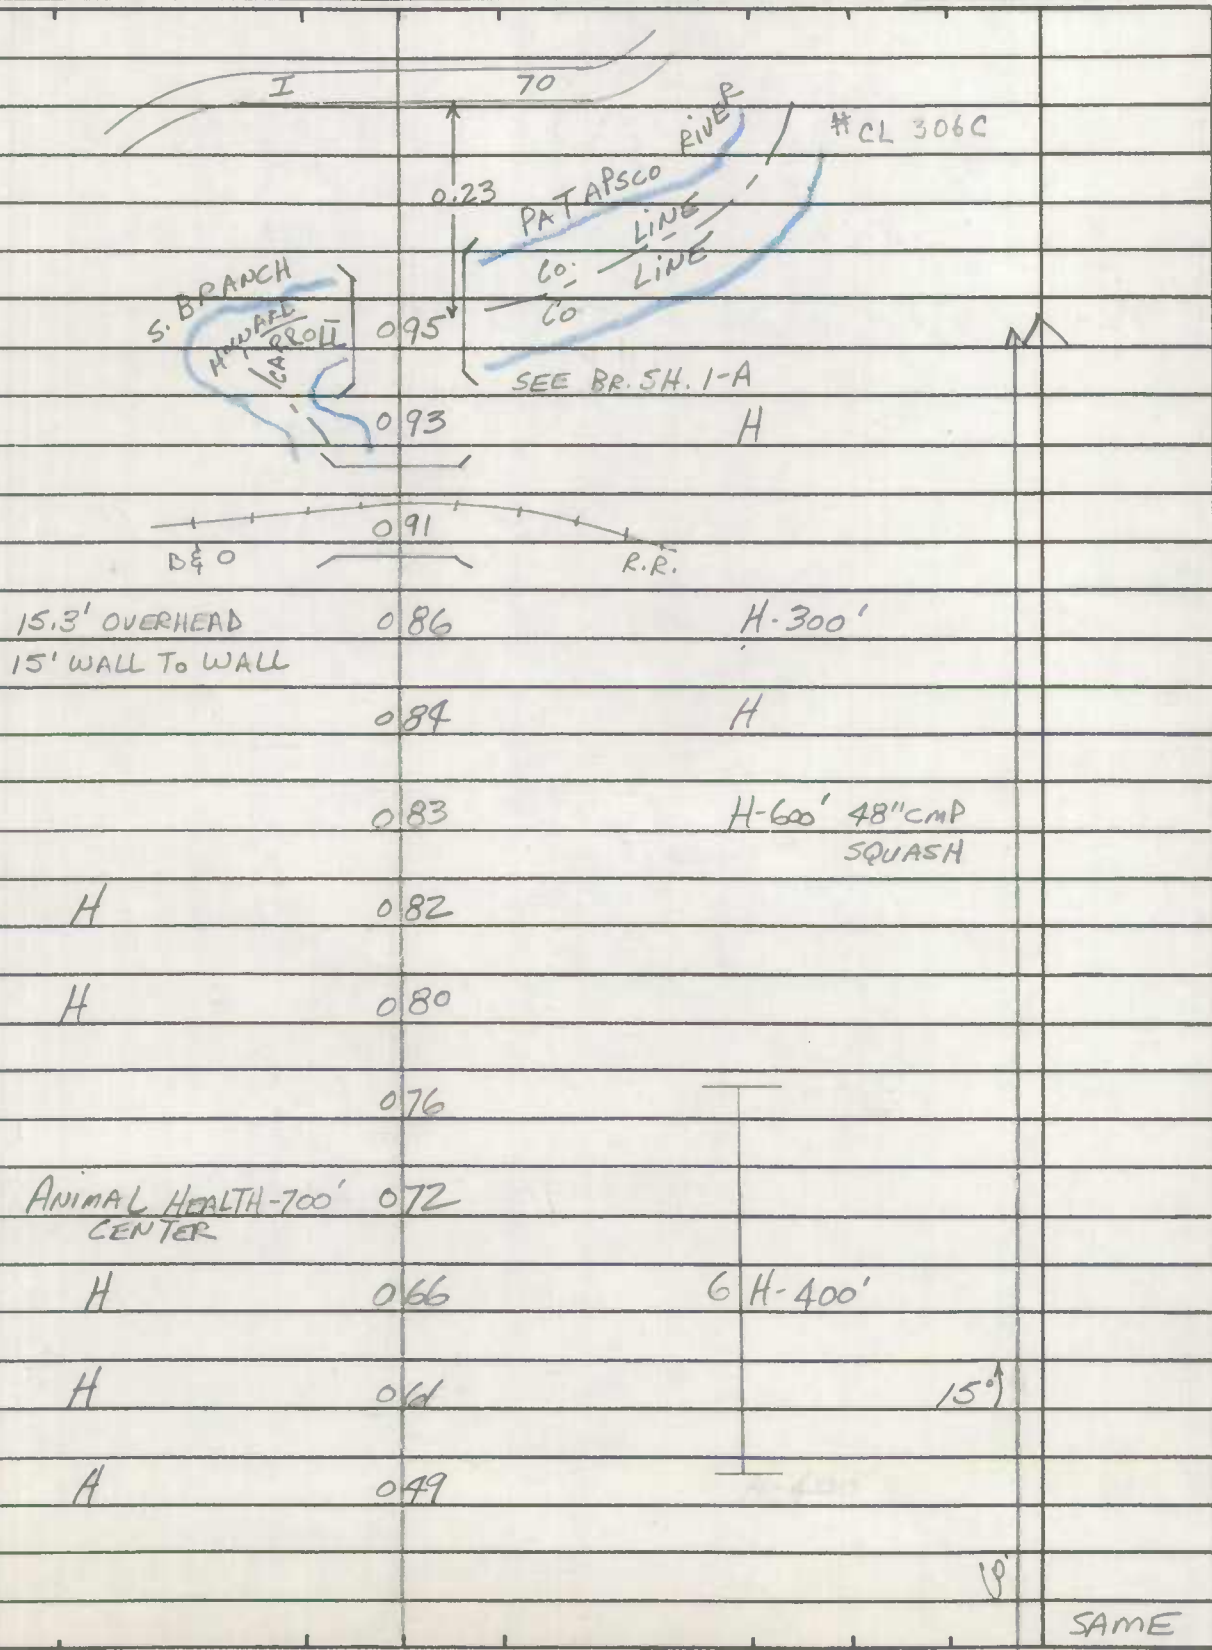 I 70
# CL 306C
0.23
PATAPSCO RIVER
CO. LINE
CO LINE
S. BRANCH
HOWARD
CARROLL
0 95
SEE BR. SH. 1-A
0 93 H
0 91
B&O R.R.
15.3' OVERHEAD 0 86 H-300'
15' WALL TO WALL
0 84 H
0 83 H-600' 48" CMP
SQUASH
H 0 82
H 0 80
0 76
ANIMAL HEALTH-700' 0 72
CENTER
H 0 66 6 H-400'
H 0 61 15°
H 0 49
SAME